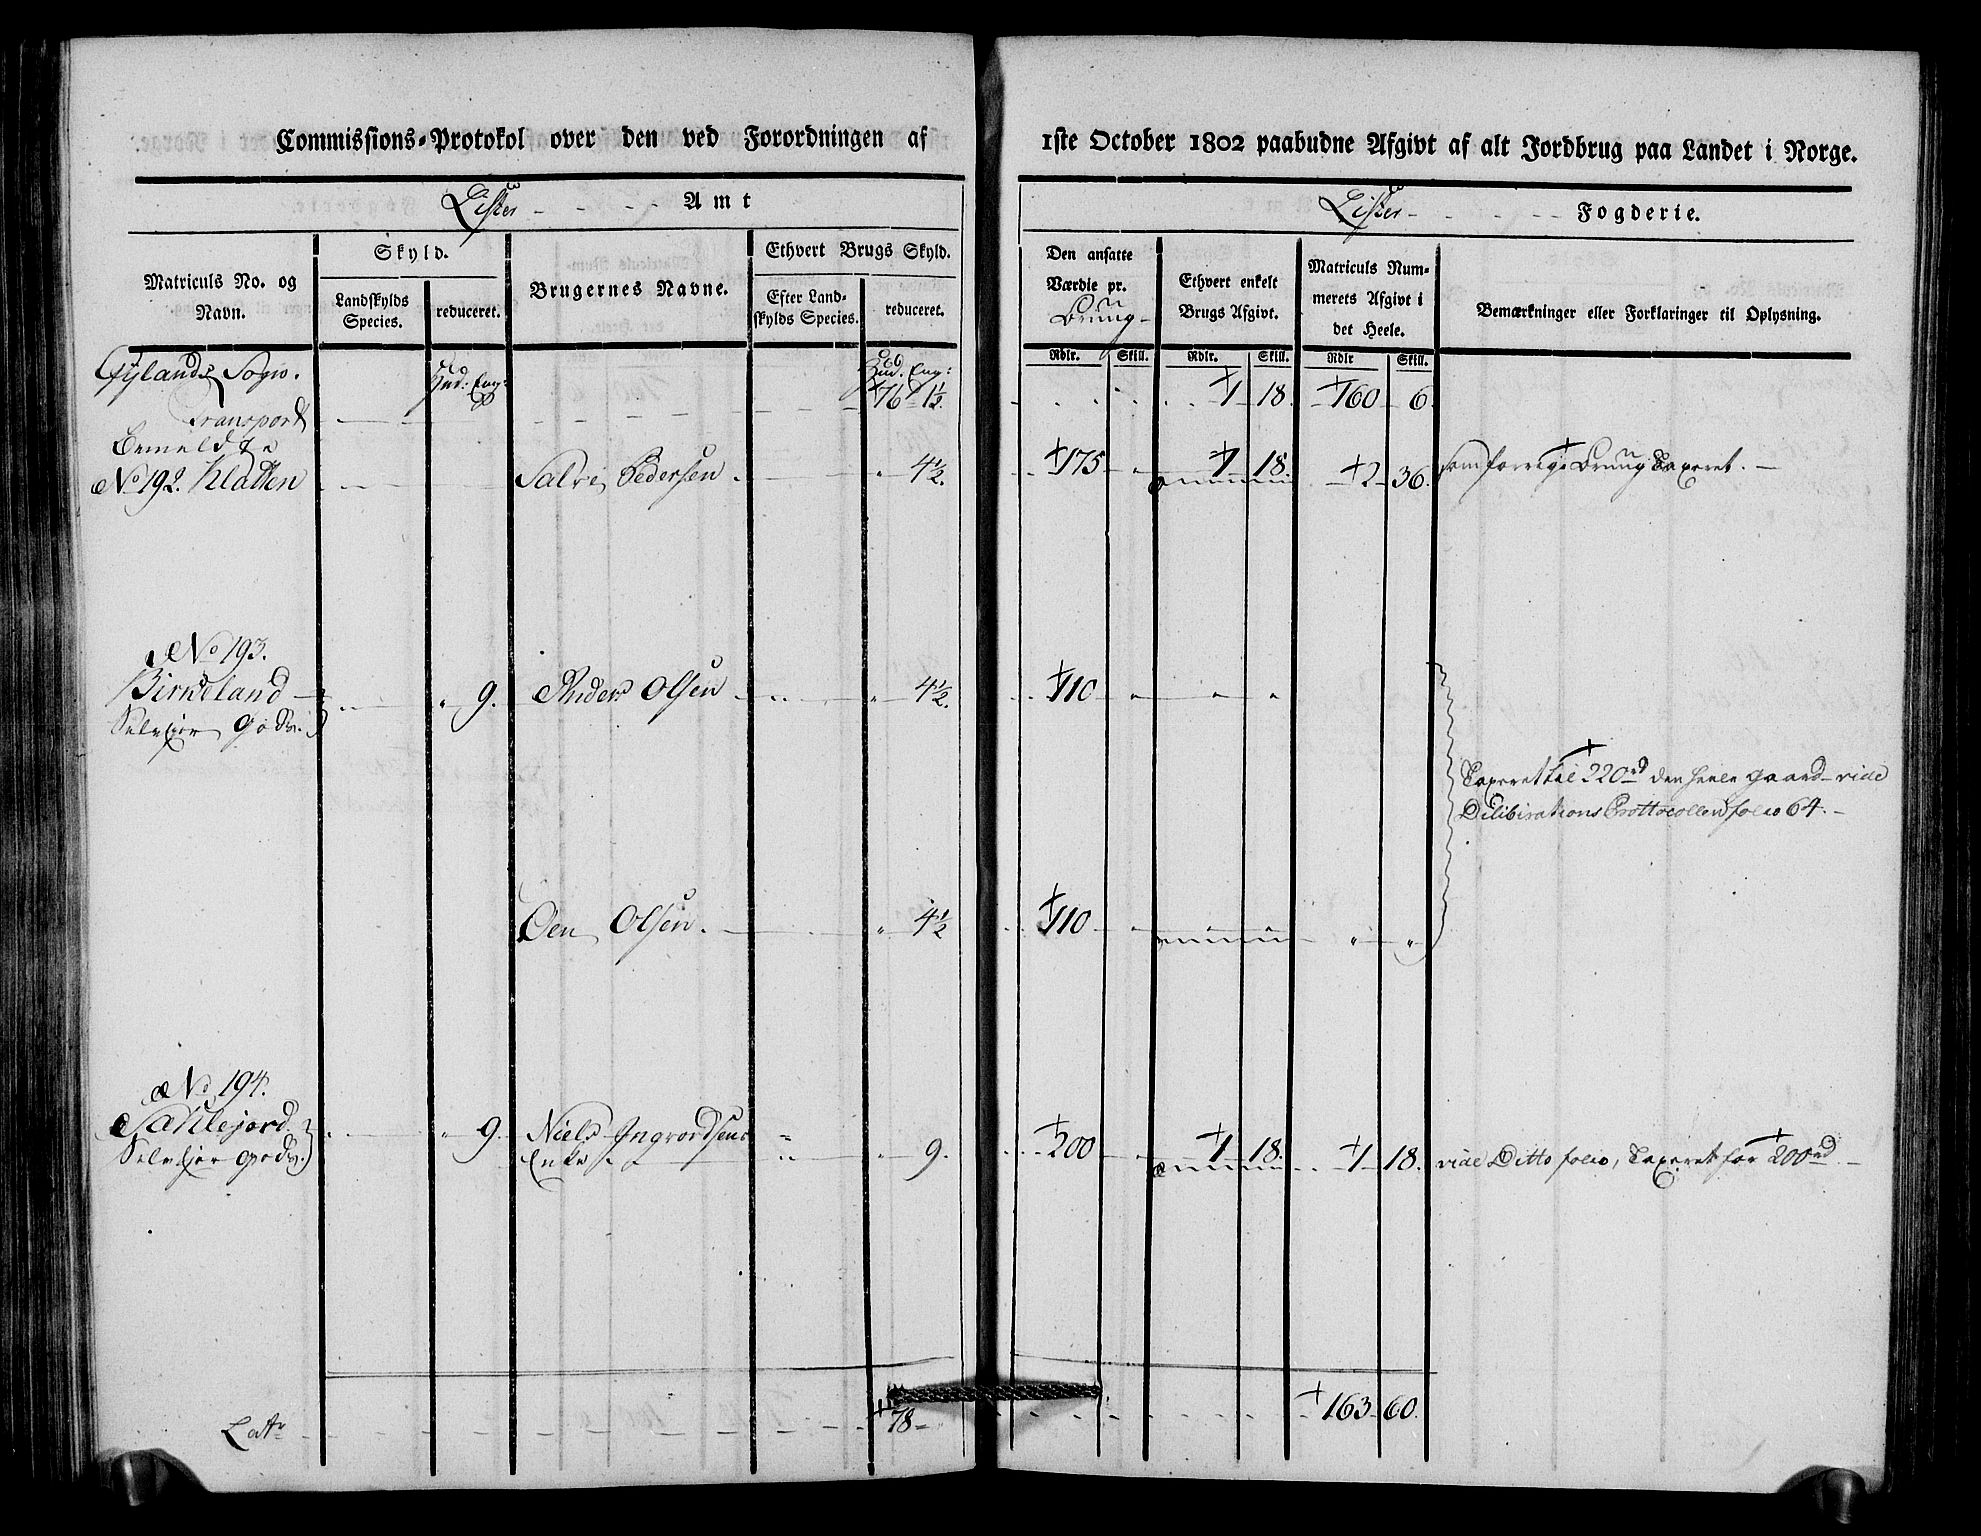 Commissions-Protokol over den ved Forordningen af
Lister Amt
Matriculs No. og Navn.
Skyld.
Landskylds Species.
reduceret.
Brugernes Navne.
Ethvert Brugs Skyld.
Efter Landskylds Species.
reduceret.
Gylands Sogn. Hud: Eng: Hud. Eng:
Transport 76 1½.
Bemeldte
No 192. Kladten Salve Pedersen 4½.
No 193.
Birkeland 9. Anders Olsen 4½.
Selvejer Gods.
Oen Olsen. 4½
No 194.
Sahlejord 9. Niels Ingvordsens
Selvejer Gods. Enke 9.
Latr 78
1ste October 1802 paabudne Afgivt af alt Jordbrug paa Landet i Norge.
Lister Fogderie.
Den ansatte Værdie pr. Brug
Ethvert enkelt Brugs Afgivt.
Matriculs Nummerets Afgivt i det Heele.
Bemærkninger eller Forklaringer til Oplysning.
Rdlr. Skill. Rdlr. Skill. Rdlr Skill.
1 18 160 6.
175 1 18. 2 36. som forrige Brug Taxeret.
110
Taxeret til 220rd den heele gaard vide
Dilibirations Prottocollen folio 64.
110
200 1 18. 1 18. vide Ditto folio, Taxeret for 200rd
163 60.